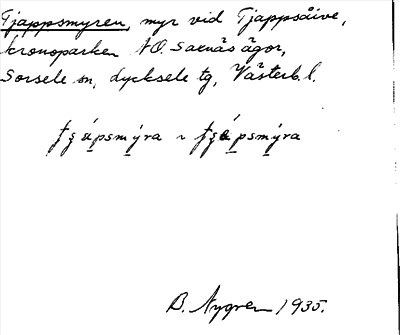 Tjappsmyren, myr vid Tjappsåive,
kronoparken NO. Saxnäs ägor,
Sorsele sn, Lycksele tg, Västerb. l.
B. Nygren 1935.